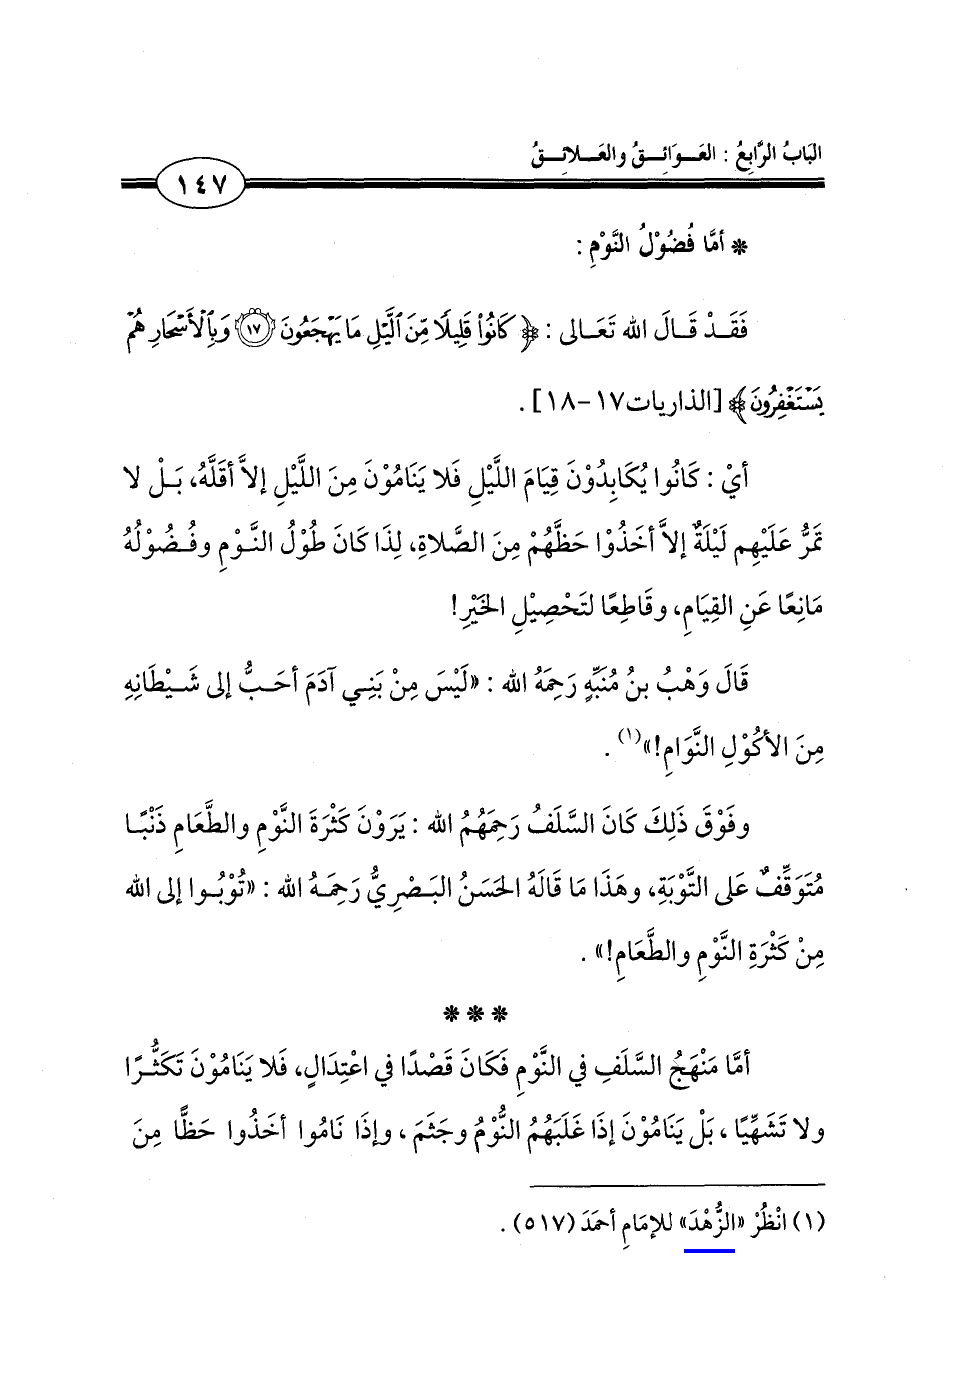 البَابُ الرَّابِعُ : العَـوَائِـقُ والعَـلائِـقُ
١٤٧
* أمَّا فُضُوْلُ النَّوْمِ :
فَقَـدْ قَـالَ الله تَعَـالى : ﴿ كَانُوا۟ قَلِيلًا مِّنَ ٱلَّيْلِ مَا يَهْجَعُونَ ۝١٧ وَبِٱلْأَسْحَارِ هُمْ
يَسْتَغْفِرُونَ ﴾ [الذاريات١٧-١٨] .
أيْ : كَانُوا يُكَابِدُوْنَ قِيَامَ اللَّيْلِ فَلا يَنَامُوْنَ مِنَ اللَّيْلِ إلاَّ أقَلَّهُ، بَـلْ لا
تَمُرُّ عَلَيْهِم لَيْلَةٌ إلاَّ أخَذُوْا حَظَّهُمْ مِنَ الصَّلاةِ، لِذَا كَانَ طُوْلُ النَّـوْمِ وفُـضُوْلُهُ
مَانِعًا عَنِ القِيَامِ، وقَاطِعًا لتَحْصِيْلِ الخَيْرِ!
قَالَ وَهْبُ بنُ مُنَبِّهٍ رَحِمَهُ الله : «لَيْسَ مِنْ بَنِـي آدَمَ أحَـبُّ إلى شَـيْطَانِهِ
مِنَ الأكُوْلِ النَّوَامِ!»(١) .
وفَوْقَ ذَلِكَ كَانَ السَّلَفُ رَحِمَهُمُ الله : يَرَوْنَ كَثْرَةَ النَّوْمِ والطَّعَامِ ذَنْبًـا
مُتَوَقِّفٌ عَلى التَّوْبَةِ، وهَذَا مَا قَالَهُ الحَسَنُ البَـصْرِيُّ رَحِمَـهُ الله : «تُوْبُـوا إلى الله
مِنْ كَثْرَةِ النَّوْمِ والطَّعَامِ!» .
* * *
أمَّا مَنْهَجُ السَّلَفِ في النَّوْمِ فَكَانَ قَصْدًا في اعْتِدَالٍ، فَلا يَنَامُوْنَ تَكَثُّـرًا
ولا تَشَهِّيًا ، بَلْ يَنَامُوْنَ إذَا غَلَبَهُمُ النُّوْمُ وجَثَمَ ، وإذَا نَامُوا أخَذُوا حَظًّا مِنَ
(١) انْظُرْ «الزُّهْدَ» للإمَامِ أحمَدَ (٥١٧) .